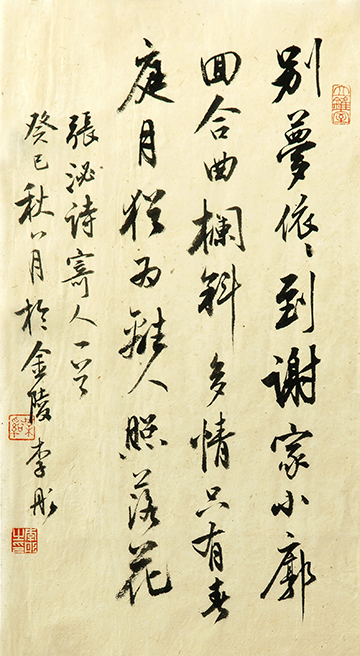 别夢依〻到謝家小廊
囬合曲欄斜多情只有春
庭月猶为離人照落花
張泌诗寄人一首
癸巳秋八月於金陵李彤